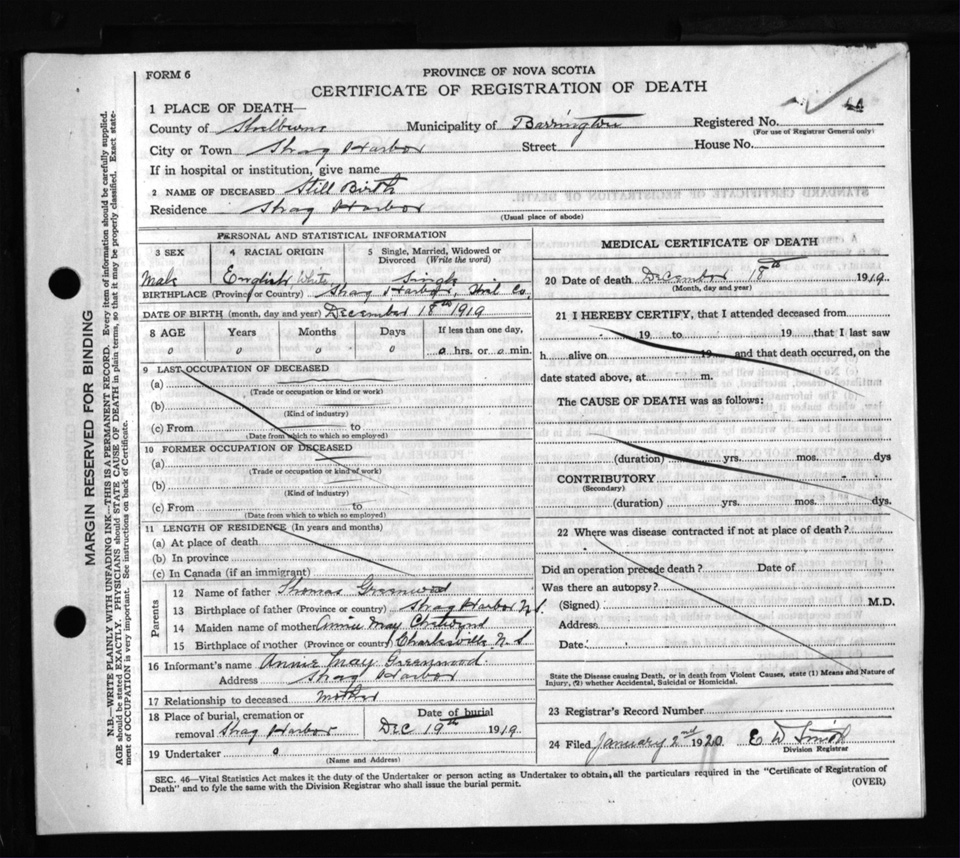 FORM 6
PROVINCE OF NOVA SCOTIA
CERTIFICATE OF REGISTRATION OF DEATH
MARGIN RESERVED FOR BINDING
N.B.—WRITE PLAINLY WITH UNFADING INK—THIS IS A PERMANENT RECORD. Every item of information should be carefully supplied.
AGE should be stated EXACTLY. PHYSICIANS should STATE CAUSE OF DEATH in plain terms, so that it may be properly classified. Exact state-
ment of OCCUPATION is very important. See instructions on back of Certificate.
1 PLACE OF DEATH—
County of Shelburne Municipality of Barrington Registered No.
(For use of Registrar General only)
City or Town Shag Harbor Street House No.
If in hospital or institution, give name
2 NAME OF DECEASED Still Birth
Residence Shag Harbor
(Usual place of abode)
PERSONAL AND STATISTICAL INFORMATION
3 SEX 4 RACIAL ORIGIN 5 Single, Married, Widowed or Divorced (Write the word)
Male English White Single
BIRTHPLACE (Province or Country) Shag Harbor, Shel Co.
DATE OF BIRTH (month, day and year) December 18th 1919
8 AGE Years Months Days If less than one day,
0 0 0 0 0 hrs. or 0 min.
9 LAST OCCUPATION OF DECEASED
(a)
(Trade or occupation or kind or work)
(b)
(Kind of industry)
(c) From to
(Date from which to which so employed)
10 FORMER OCCUPATION OF DECEASED
(a)
(Trade or occupation or kind of work)
(b)
(Kind of industry)
(c) From to
(Date from which to which so employed)
11 LENGTH OF RESIDENCE (In years and months)
(a) At place of death
(b) In province
(c) In Canada (if an immigrant)
Parents
12 Name of father Thomas Greenwood
13 Birthplace of father (Province or country) Shag Harbor N.S.
14 Maiden name of mother Annie May
15 Birthplace of mother (Province or country) Charlesville N.S
16 Informant's name Annie May Greenwood.
Address Shag Harbor
17 Relationship to deceased mother
18 Place of burial, cremation or removal Shag Harbor
Date of burial
Dec 19th 1919
19 Undertaker 0
(Name and Address)
MEDICAL CERTIFICATE OF DEATH
20 Date of death December 18th 1919
(Month, day and year)
21 I HEREBY CERTIFY, that I attended deceased from
19 to 19 that I last saw
h alive on 19 and that death occurred, on the
date stated above, at m.
The CAUSE OF DEATH was as follows:
(duration) yrs. mos. dys
CONTRIBUTORY
(Secondary)
(duration) yrs. mos. dys.
22 Where was disease contracted if not at place of death?
Did an operation precede death? Date of
Was there an autopsy?
(Signed) M.D.
Address
Date
State the Disease causing Death, or in death from Violent Causes, state (1) Means and Nature of
Injury, (2) whether Accidental, Suicidal or Homicidal.
23 Registrar's Record Number
24 Filed January 2nd 1920 E W Smith
Division Registrar
SEC. 46—Vital Statistics Act makes it the duty of the Undertaker or person acting as Undertaker to obtain, all the particulars required in the "Certificate of Registration of
Death" and to fyle the same with the Division Registrar who shall issue the burial permit.
(OVER)